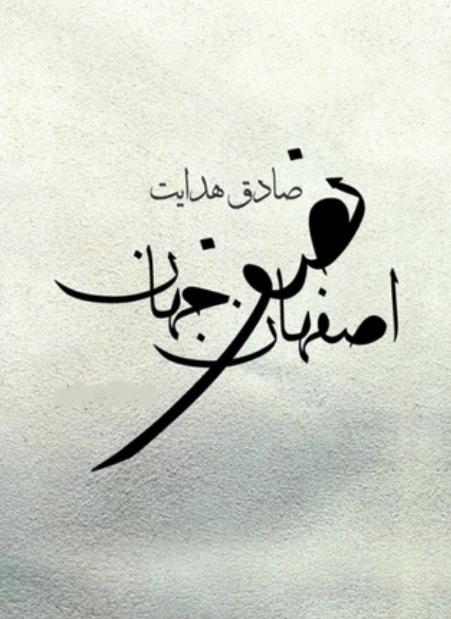 صادق هدایت
اصفهان نصف جهان